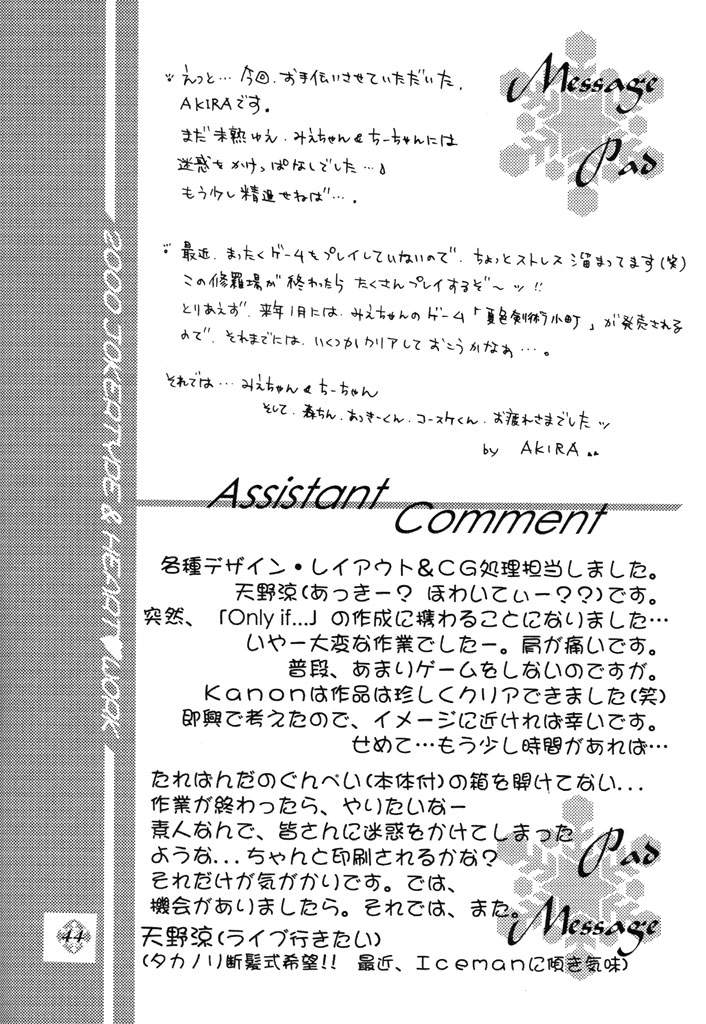 Message
Pad
えっと… 今回、お手伝いさせていただいた、
AKIRAです。
まだ未熟ゆえ、みえちゃん&ちーちゃんには
迷惑をかけっぱなしでした…♪
もう少し精進せねば…。
最近、まったくゲームをプレイしていないので、ちょっとストレス溜まってます(笑)
この修羅場が終わったら たくさんプレイするぞ〜ッ!!
とりあえず、来年1月には、みえちゃんのゲーム「夏色剣術小町」が発売される
ので、それまでには、いくつかクリアしておこうかなぁ…。
それでは… みえちゃん&ちーちゃん
そして、森ちん、あっきーくん、コースケくん、お疲れさまでしたッ
by AKIRA
Assistant
Comment
各種デザイン・レイアウト&CG処理担当しました。
天野涼(あっきー? ほわいてぃー??)です。
突然、「Only if...」の作成に携わることになりました…
いやー大変な作業でしたー。肩が痛いです。
普段、あまりゲームをしないのですが。
Kanonは作品は珍しくクリアできました(笑)
即興で考えたので、イメージに近ければ幸いです。
せめて…もう少し時間があれば…
たればんだのぐんぺい(本体付)の箱を開けてない...
作業が終わったら、やりたいなー
素人なんで、皆さんに迷惑をかけてしまった
ような...ちゃんと印刷されるかな?
それだけが気がかりです。では、
機会がありましたら。それでは、また。
天野涼(ライブ行きたい)
(タカノリ断髪式希望!! 最近、Icemanに傾き気味)
Pad
Message
2000 JOKERTYPE & HEART♥WORK
44